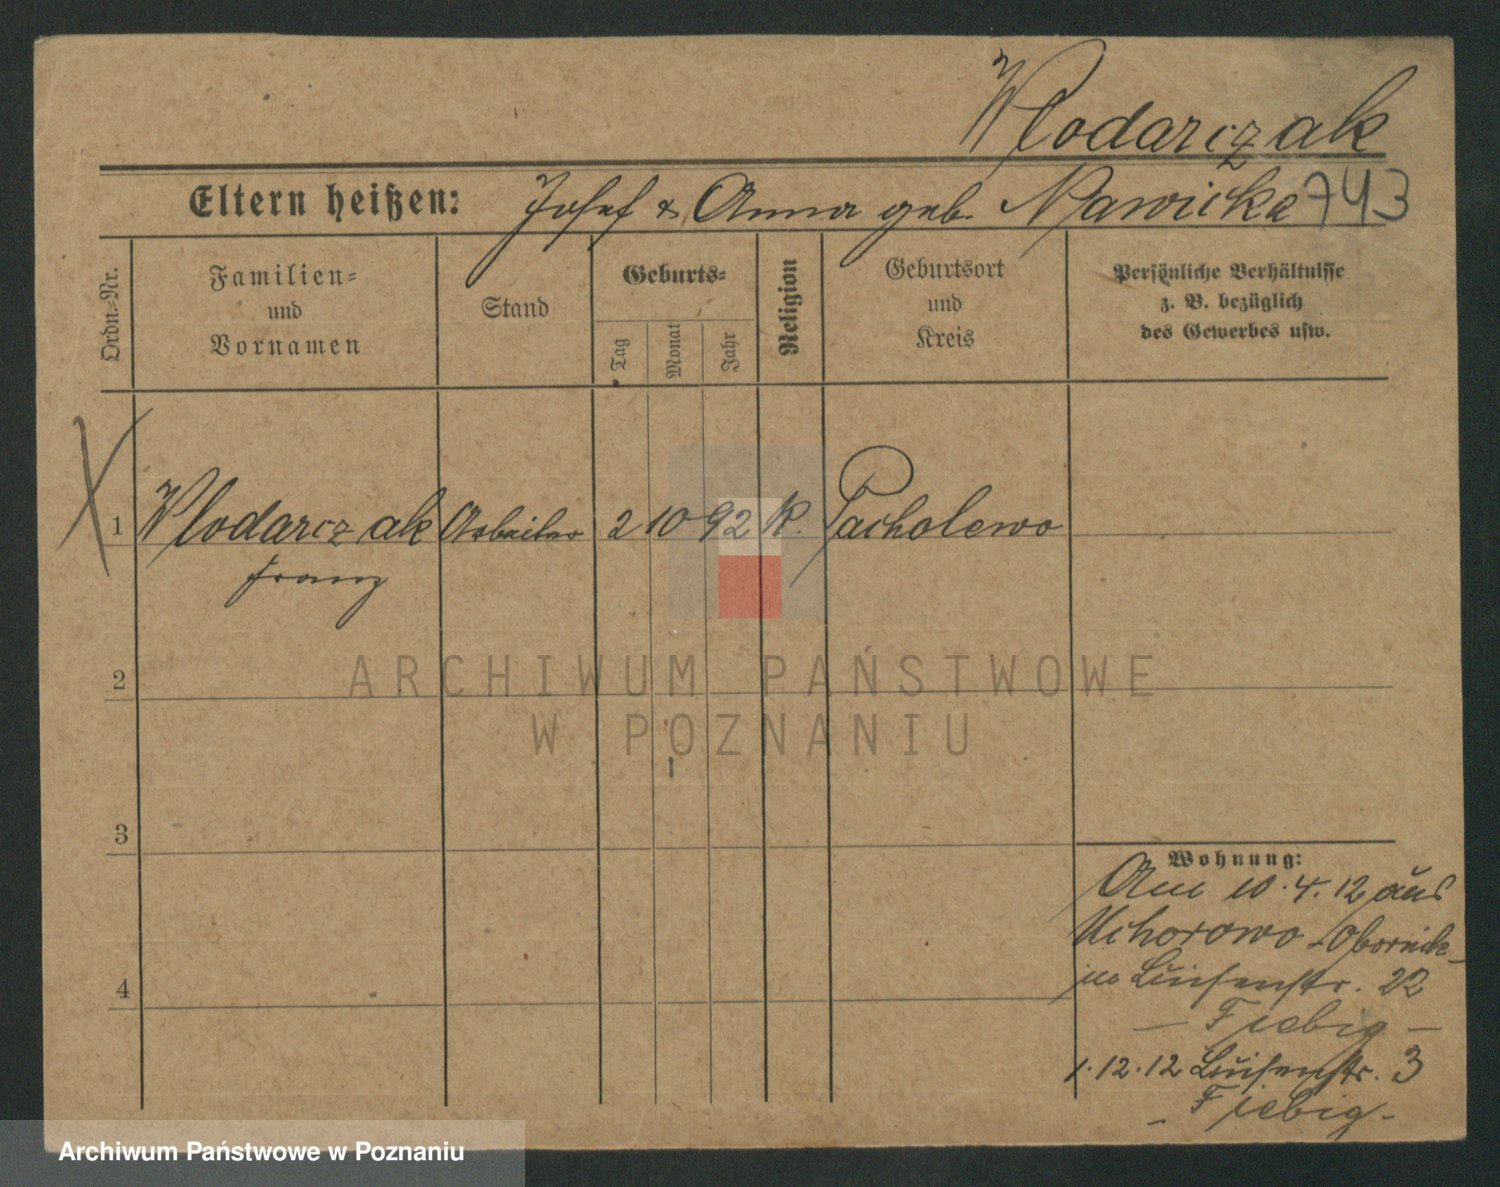 Wlodarczak
Eltern heißen: Josef & Anna geb. Nawicka 743
Ordn.-Nr.
Familien-
und
Vornamen
Stand
Geburts-
Tag
Monat
Jahr
Religion
Geburtsort
und
Kreis
Persönliche Verhältnisse
z. B. bezüglich
des Gewerbes usw.
1 Wlodarczak Arbeiter 2 10 92 K. Pacholewo
Franz
2
3
4
Wohnung:
Am 10.4.12 aus
Uchorowo - Obornik
in Luisenstr. 22
- Fiebig -
1.12.12 Luisenstr. 3
- Fiebig -
ARCHIWUM PAŃSTWOWE
W POZNANIU
Archiwum Państwowe w Poznaniu